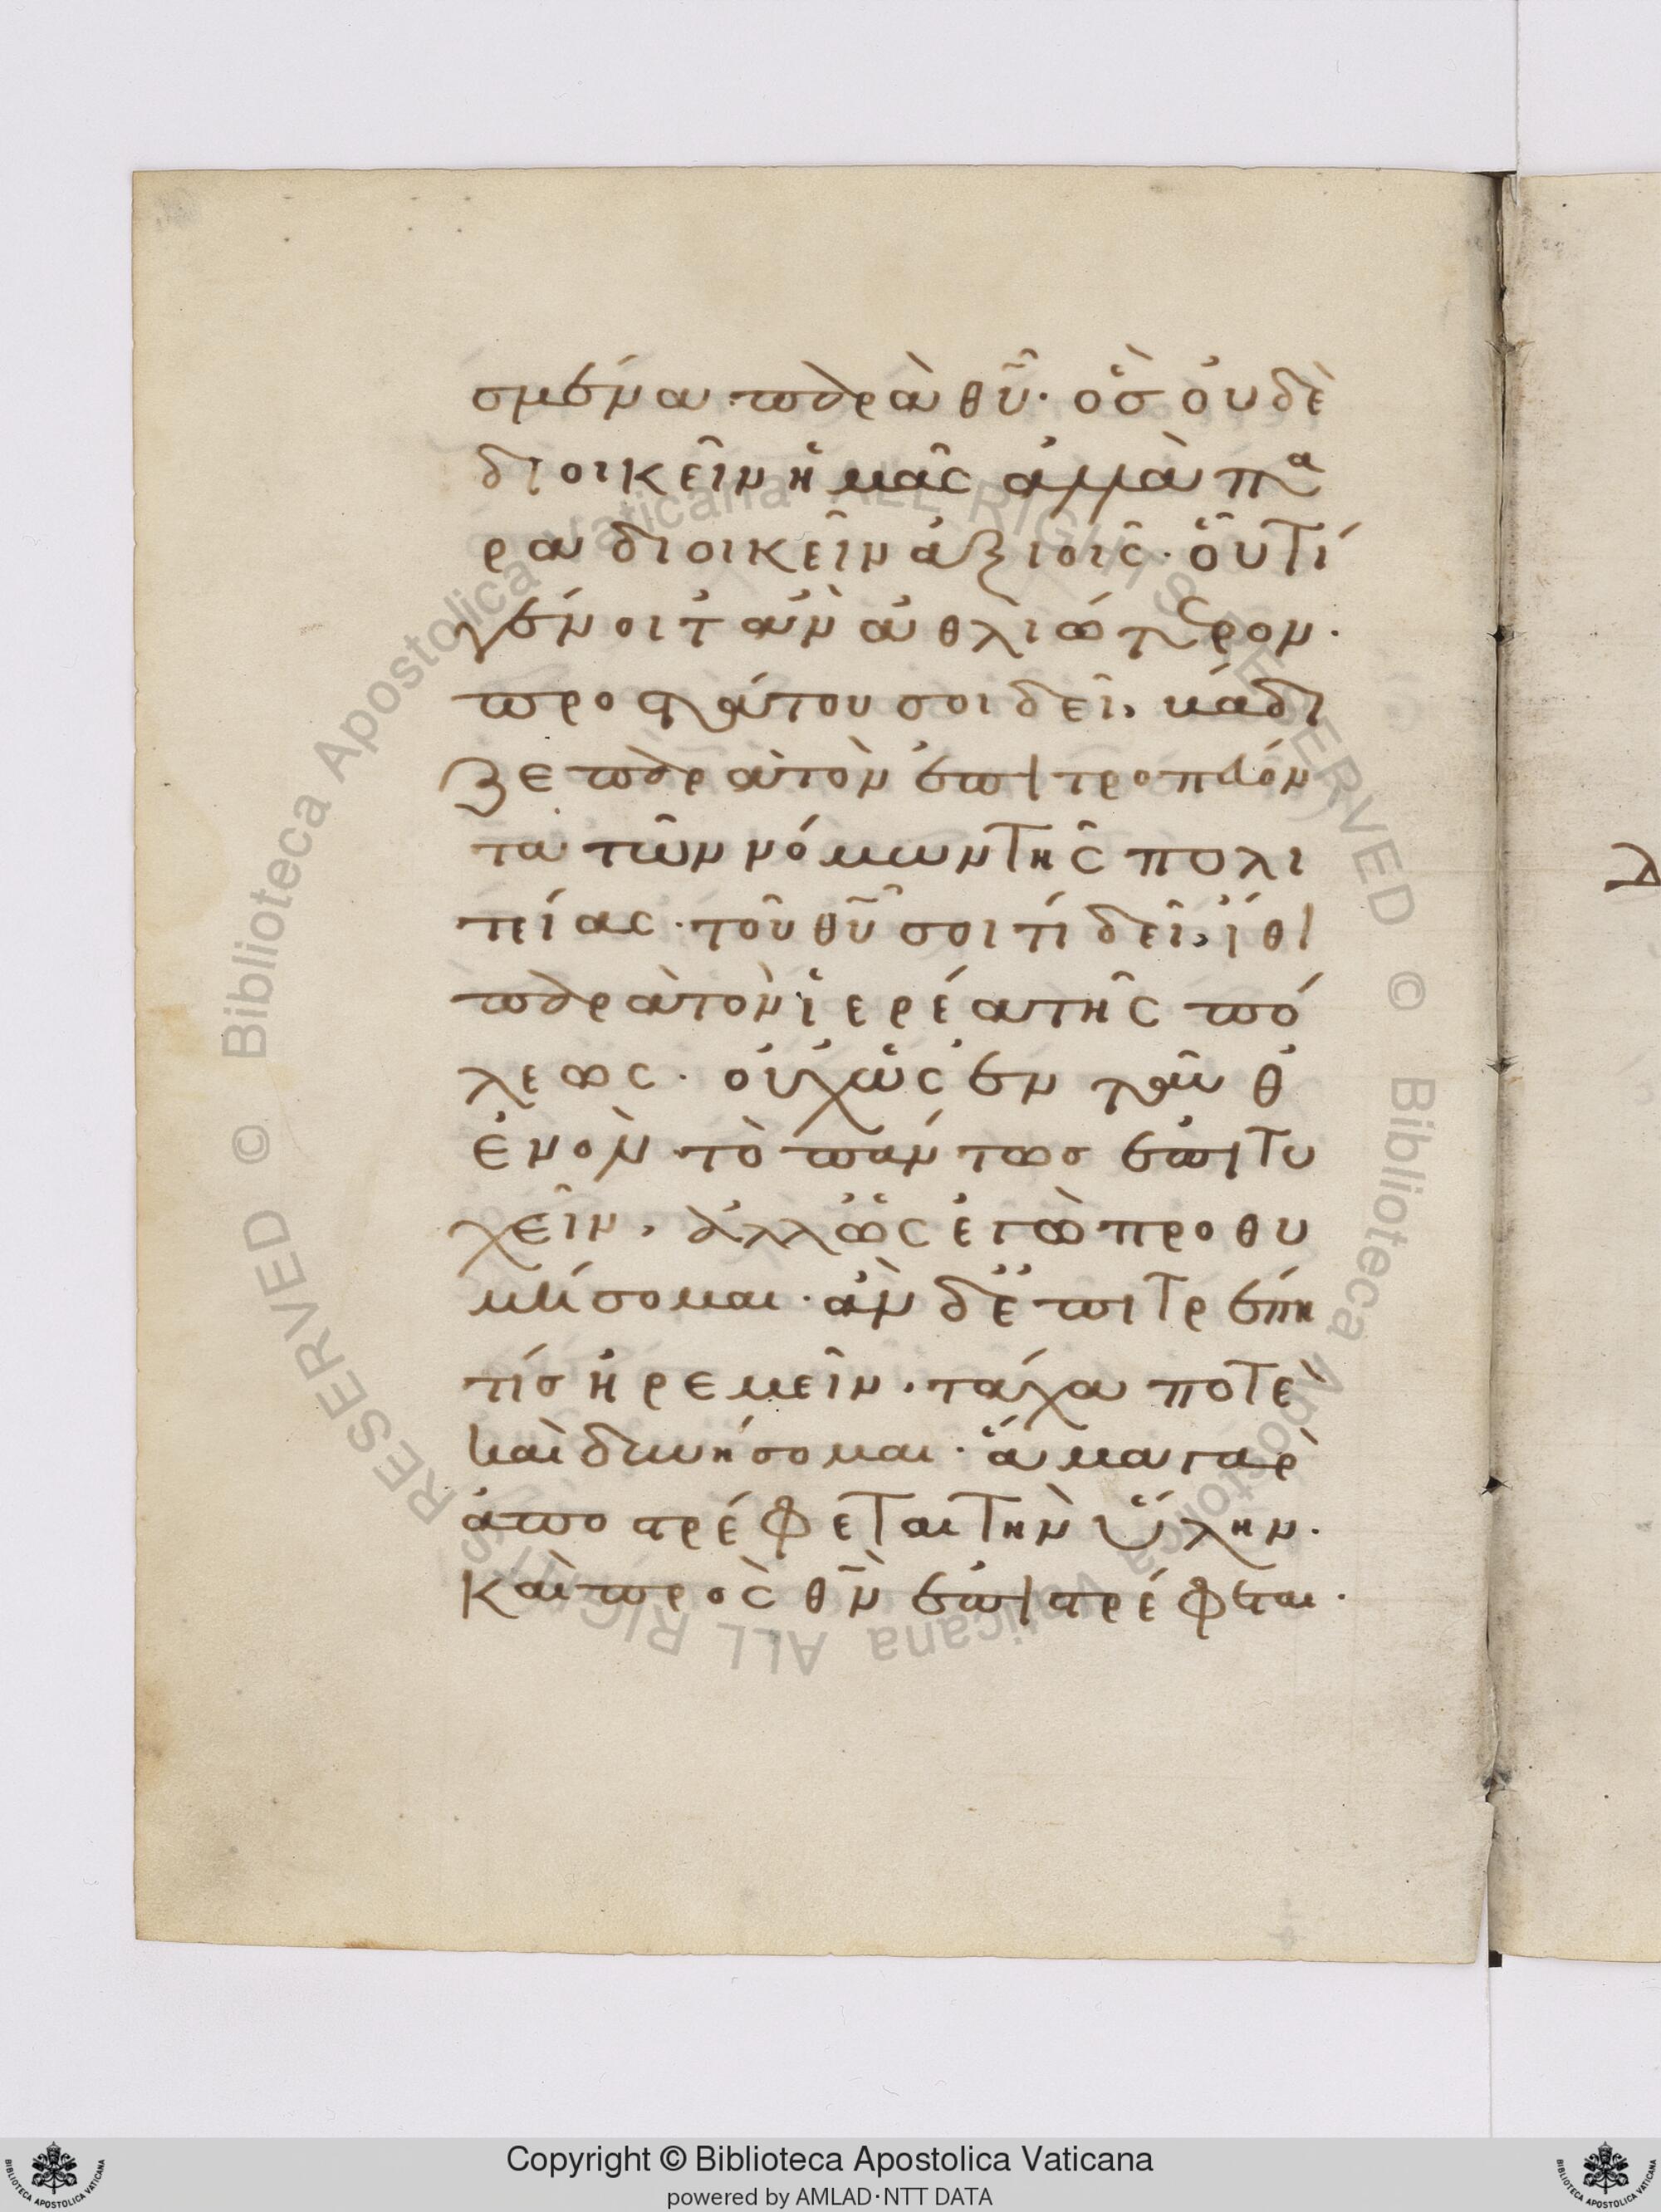 σμένα παρὰ θῦ· ὃσ ὀυδὲ
διοικεῖν ἡμᾶς ἀλλὰ πα
ραδιοικεῖν ἀξιοῖς· ὃυ τί
γένοιτ ἀν ἀθλιώτερον·
προστάτου σοι δεῖ, κάθι
ζε παρὰ τὸν ἐπιτροπεύον
τα τῶν νόμων τῆς πολι
τείας· τοῦ θῦ σοι τί δεῖ, ἴθι
παρὰ τὸν ἱερέα τῆς πό
λεως· ὀυχ ὡς ἐν ταῦθ
ἐνὸν τὸ πάντως ἐπιτυ
χεῖν, ἀλλ ὡς ἐγὼ προθυ
μήσομαι· ἀν δὲ ἐπιτρέπη
τίσ ἠρεμεῖν· τάχα ποτὲ
καὶ δυνήσομαι· ἅμα γαρ
ἀποστρέφεται τὴν ὕλην·
καὶ πρὸς θν ἐπιστρέφεται·
Copyright © Biblioteca Apostolica Vaticana
powered by AMLAD·NTT DATA